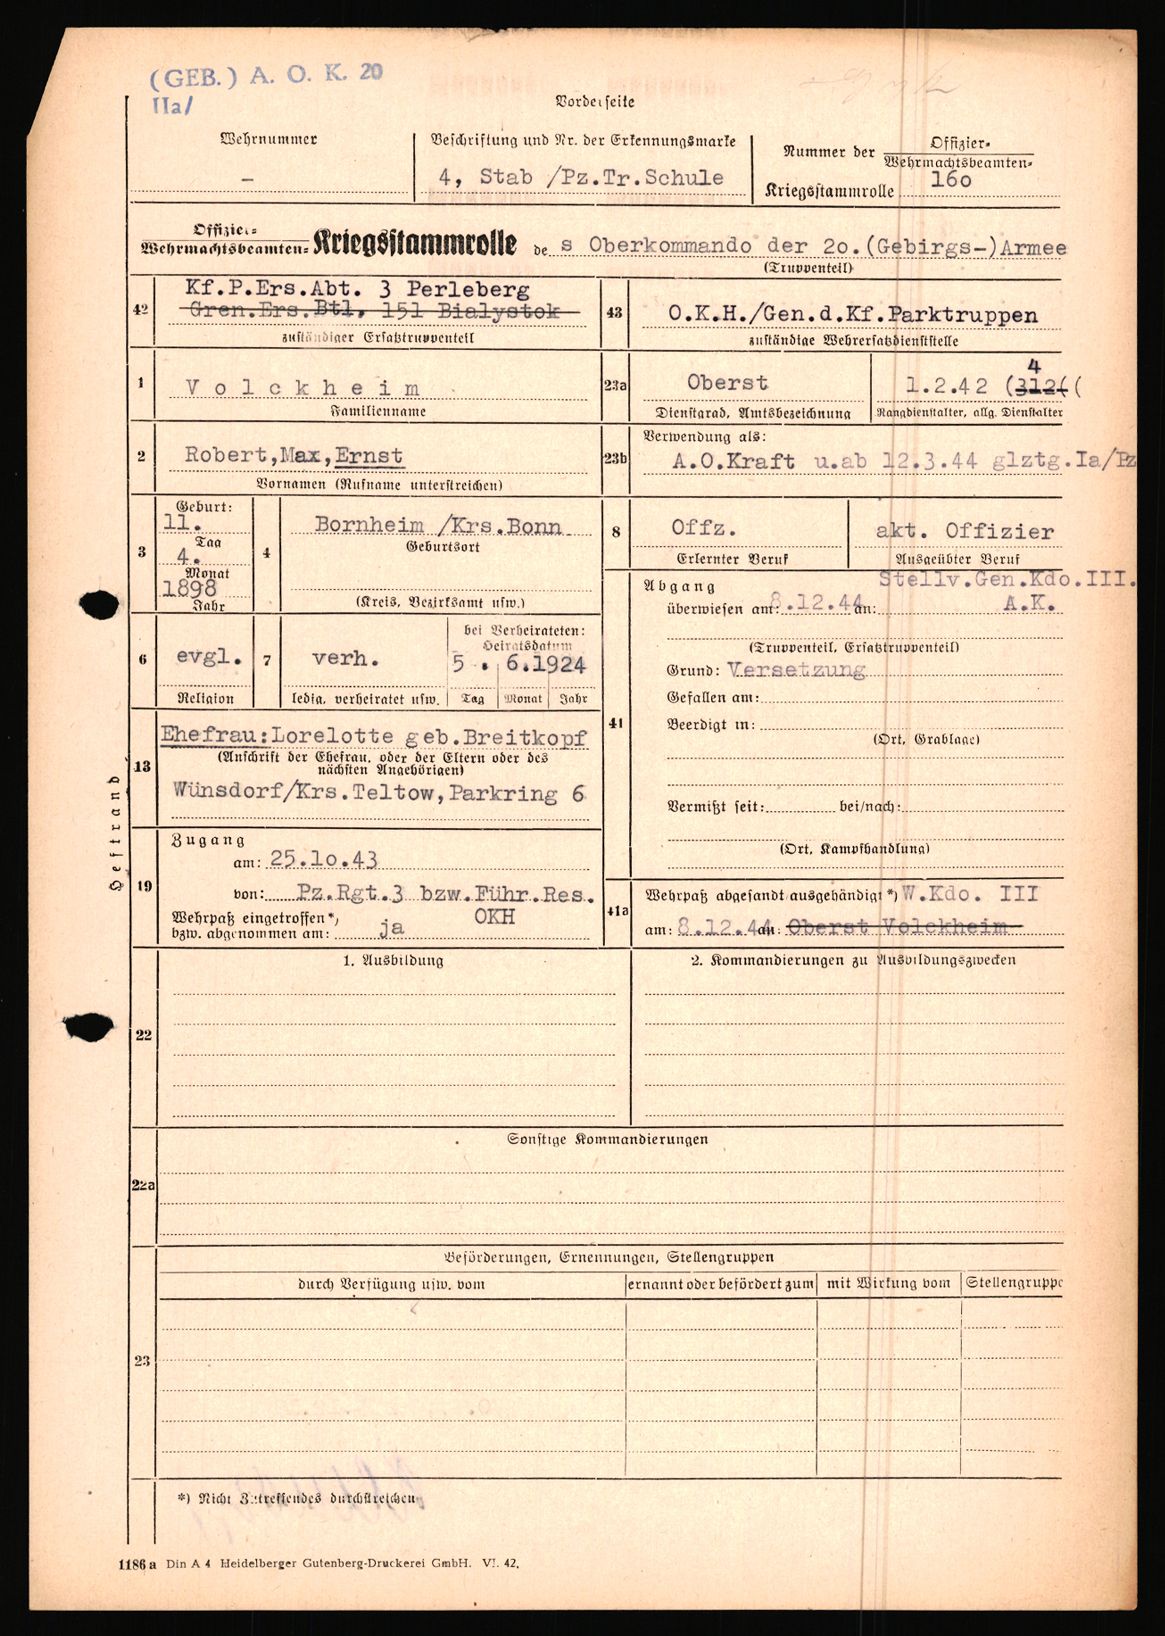 (GEB.) A. O. K. 20
IIa/
Vorderseite
Wehrnummer
–
Beschriftung und Nr. der Erkennungsmarke
4, Stab /Pz.Tr.Schule
Nummer der Offizier-
Wehrmachtsbeamten-
Kriegsstammrolle 16o
Offizier-
Wehrmachtsbeamten- Kriegsstammrolle des Oberkommando der 2o.(Gebirgs-)Armee
(Truppenteil)
42
Kf.P.Ers.Abt. 3 Perleberg
Gren.Ers.Btl. 151 Bialystok
zuständiger Ersatztruppenteil
43
O.K.H./Gen.d.Kf.Parktruppen
zuständige Wehrersatzdienststelle
1
Volckheim
Familienname
23a
Oberst
Dienstgrad, Amtsbezeichnung
4
1.2.42 (312((
Rangdienstalter, allg. Dienstalter
2
Robert,Max,Ernst
Vornamen (Rufname unterstreichen)
23b
Verwendung als:
A.O.Kraft u.ab 12.3.44 glztg.Ia/Pz
3
Geburt:
11.
Tag
4.
Monat
1898
Jahr
4
Bornheim /Krs.Bonn
Geburtsort
(Kreis, Bezirksamt usw.)
8
Offz.
Erlernter Beruf
akt. Offizier
Ausgeübter Beruf
6
evgl.
Religion
7
verh.
ledig, verheiratet usw.
bei Verheirateten:
Heiratsdatum
5 . 6.1924
Tag Monat Jahr
41
Abgang
Stellv.Gen.Kdo.III.
überwiesen am: 8.12.44 an: A.K.
(Truppenteil, Ersatztruppenteil)
Grund: Versetzung
Gefallen am:
Beerdigt in:
(Ort, Grablage)
Vermißt seit: bei/nach:
(Ort, Kampfhandlung)
13
Ehefrau:Lorelotte geb.Breitkopf
(Anschrift der Ehefrau, oder der Eltern oder des
nächsten Angehörigen)
Wünsdorf/Krs.Teltow,Parkring 6
Heftrand
19
Zugang
am: 25.1o.43
von: Pz.Rgt.3 bzw.Führ.Res.
OKH
Wehrpaß eingetroffen*)
bzw. abgenommen am: ja
41a
Wehrpaß abgesandt ausgehändigt *) W.Kdo. III
am: 8.12.44 an: Oberst Volckheim
22
1. Ausbildung
2. Kommandierungen zu Ausbildungszwecken
22a
Sonstige Kommandierungen
23
Beförderungen, Ernennungen, Stellengruppen
durch Verfügung usw. vom
ernannt oder befördert zum
mit Wirkung vom
Stellengruppe
*) Nicht Zutreffendes durchstreichen
1186 a Din A 4 Heidelberger Gutenberg-Druckerei GmbH. VI. 42.